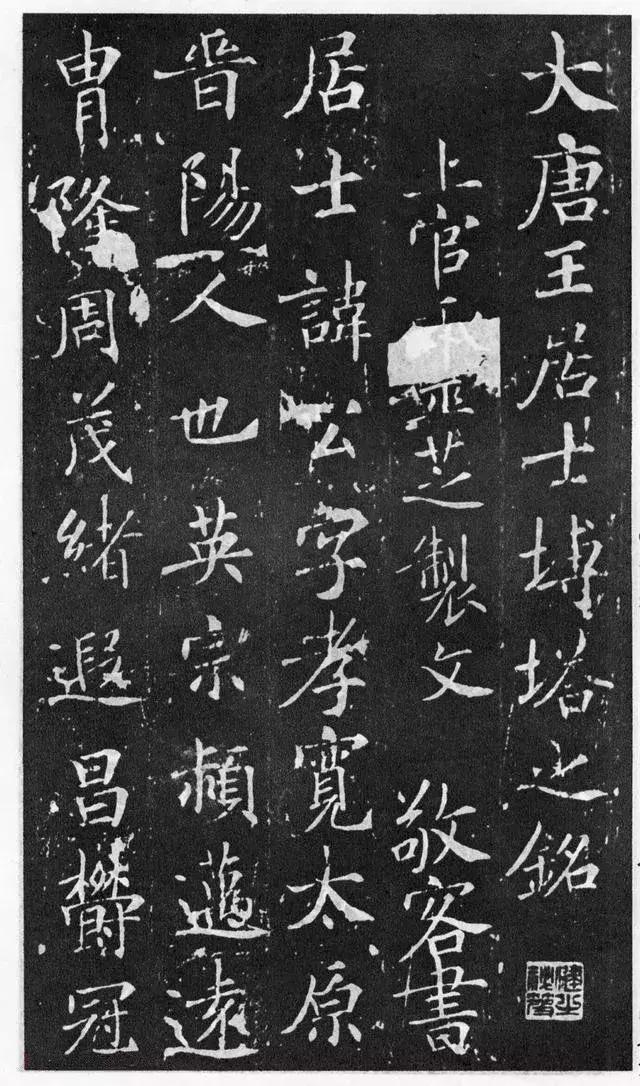 大唐王居士塼塔之銘
上官靈芝製文 敬客書
居士諱公字孝寬太原
晉陽人也英宗穎邁遠
冑隆周茂緒遐昌鬱冠